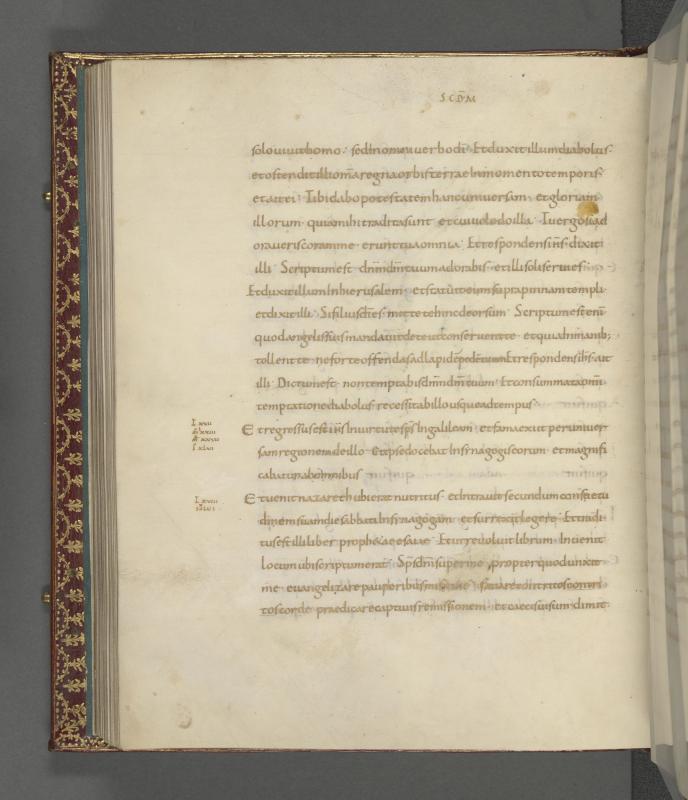 SCDM
solo vivit homo · sed in omni verbo dī · Et duxit illum diabolus
et ostendit illi om̄a regna orbis terrae in momento temporis
et ait ei · Tibi dabo potestatem hanc universam · et gloriam
illorum · quia mihi tradita sunt · et cui volo do illa · Tu ergo si ad
oraveris coram me · erunt tua omnia · Et respondens ih̄s · dixit
illi · Scriptum est · dn̄m dm̄ tuum adorabis · et illi soli servies
Et duxit illum in hierusalem · et statuit eum supra pinnam templi
et dixit illi · Si filius dī es · mitte te hinc deorsum · Scriptum est eni
quod angelis suis mandavit de te ut conservent te · et quia in manib;
tollent te · ne forte offendas ad lapidē pedē tuum Et respondens ih̄s · ait
illi · Dictum est · non temptabis dn̄m dm̄ tuum · Et consummata omni
temptatione diabolus · recessit ab illo usque ad tempus ·
Et regressus est ih̄s in virtute sp̄s in galileam · et fama exiit per univer
sam regionem de illo · Et ipse docebat in synagogis eorum · et magnifi
cabatur ab omnibus
Et venit nazareth ubi erat nutritus · et intravit secundum consuetu
dinem suam die sabbati in synagogam · et surrexit legere · Et tradi
tus est illi liber prophetae esaiae · Et ut revolvit librum · Invenit
locum ubi scriptum erat · Sp̄s dn̄i super me · propter quod unxit
me · evangelizare pauperibus misit me · sanare contritos contri
tos corde · praedicare captivis remissionem · et caecis visum · dimit